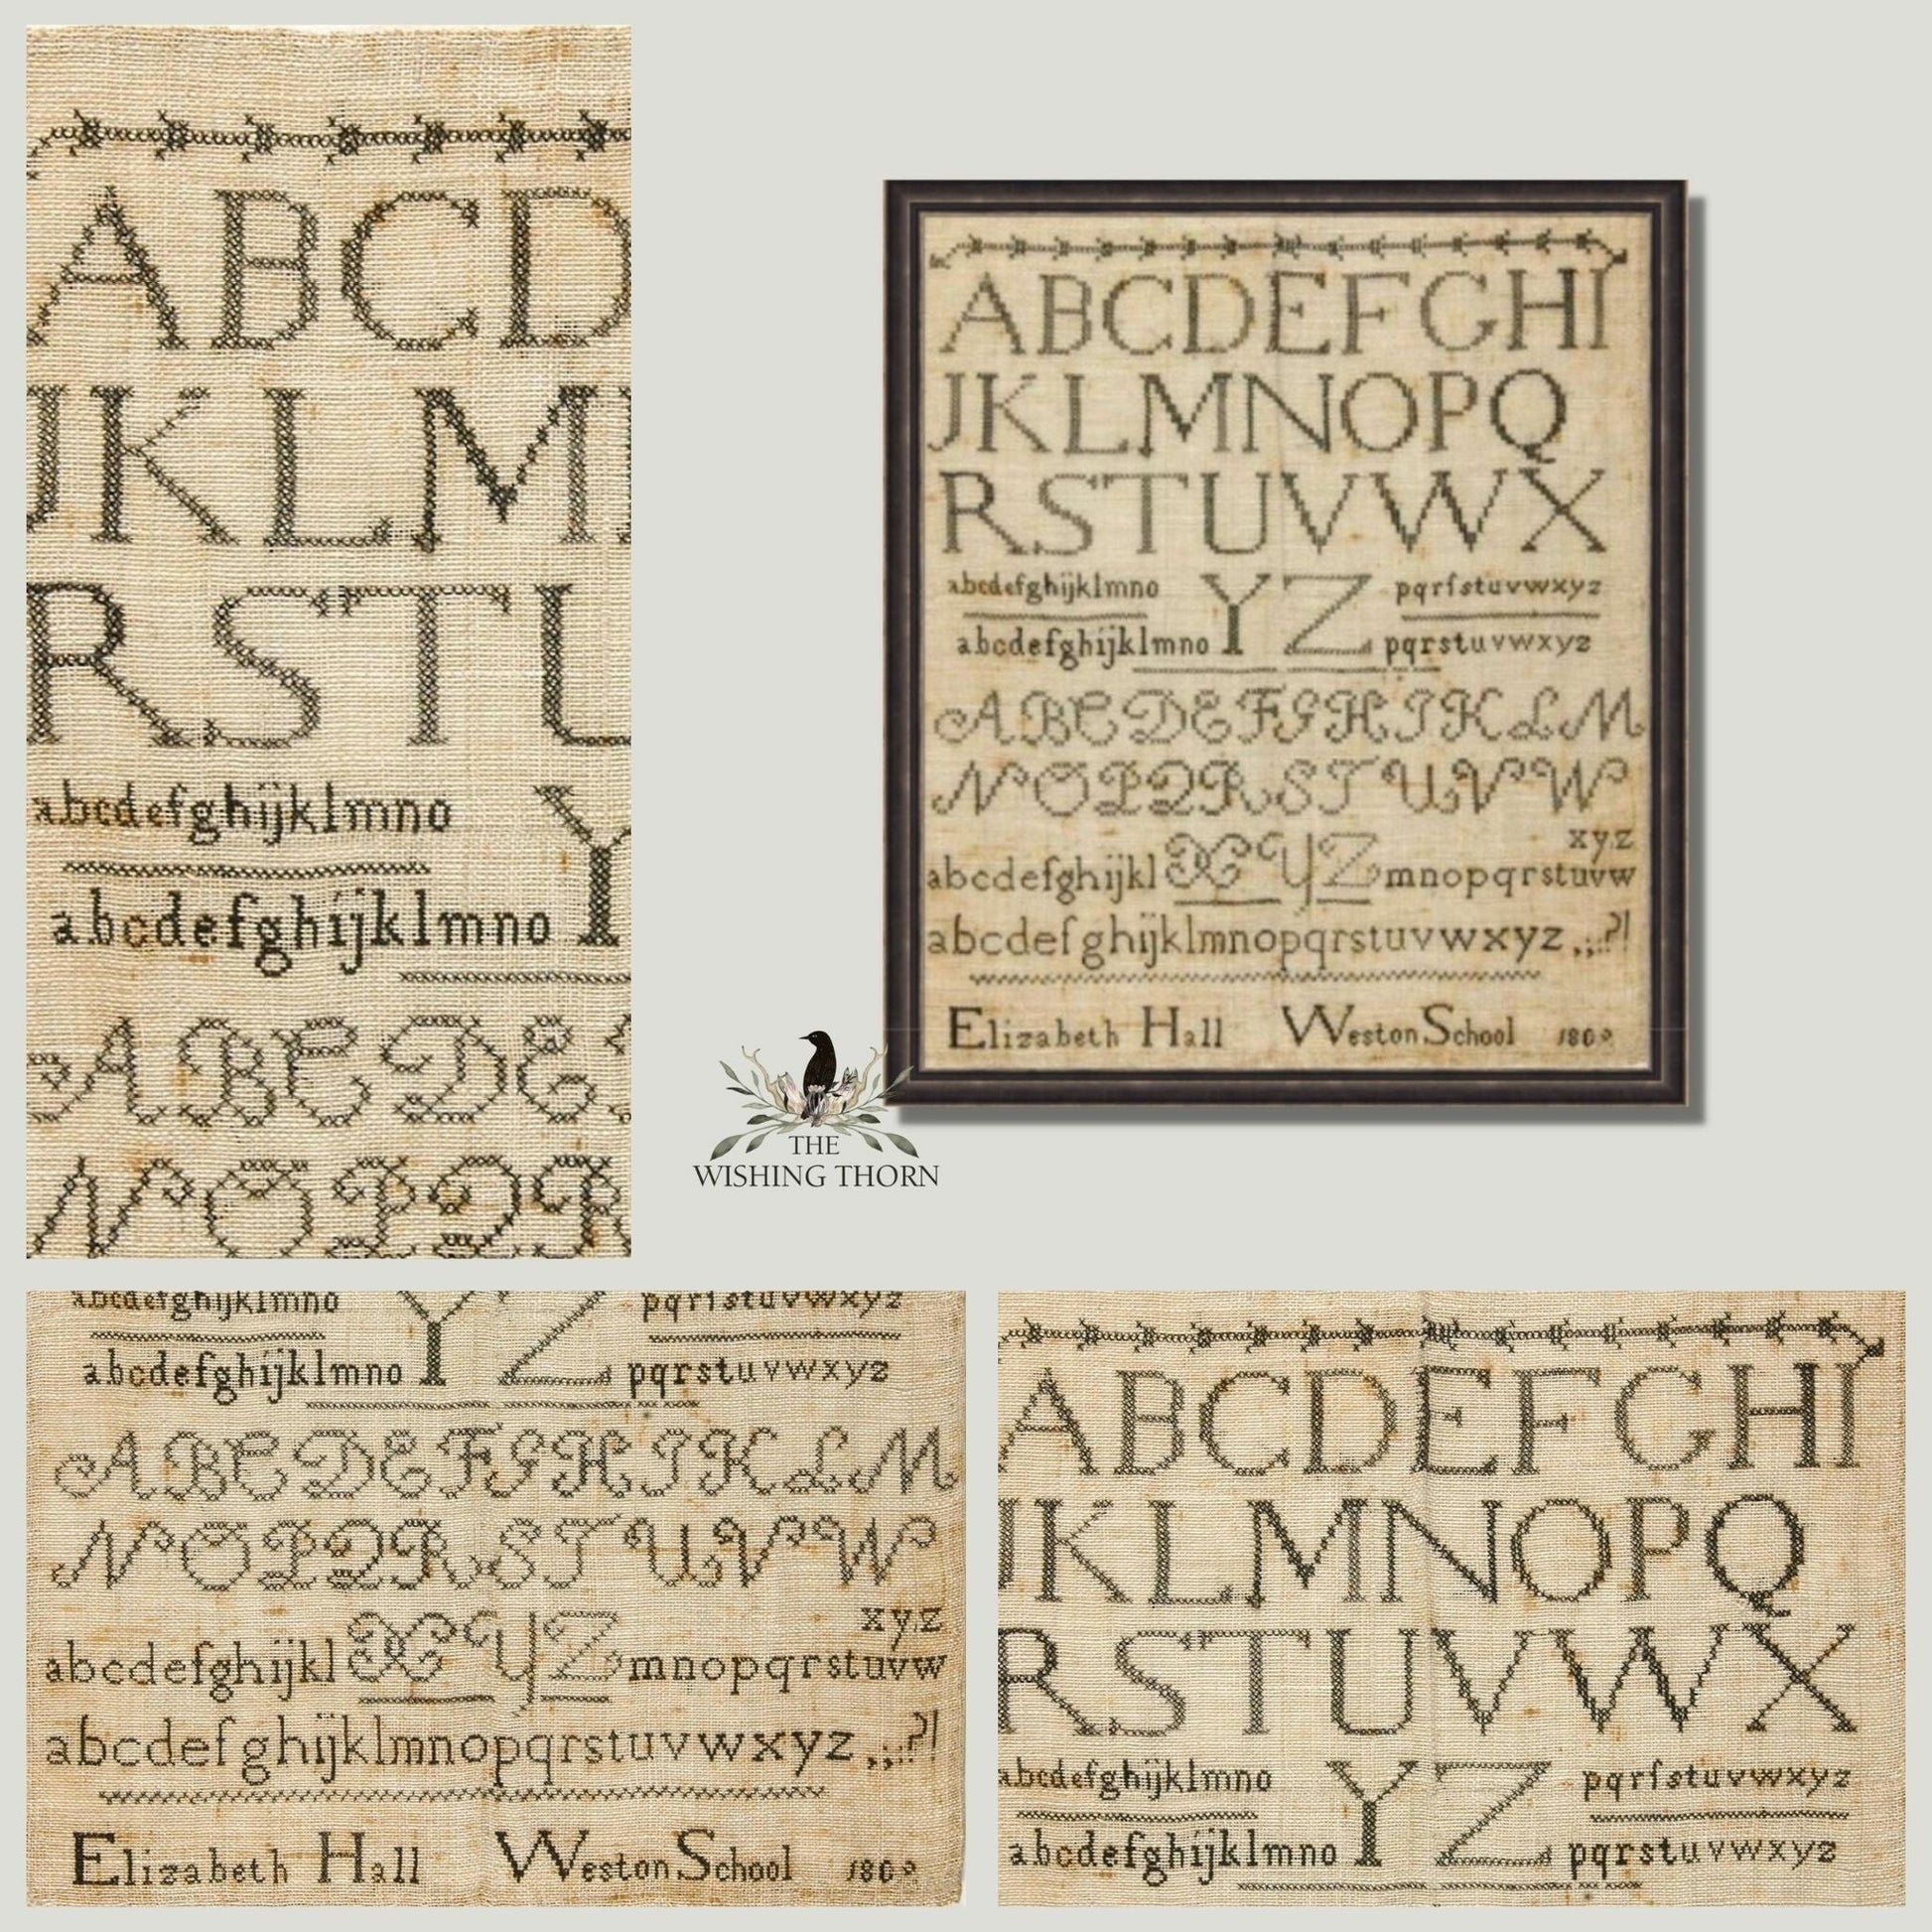 ABCD
JKLM
RSTU
abcdefghijklmno Y
abcdefghijklmno
ABCDE
NOPQR
ABCDEFGHI
JKLMNOPQ
RSTUVWX
abcdefghijklmno YZ pqrſstuvwxyz
abcdefghijklmno pqrstuvwxyz
ABCDEFGHIKLM
NOPQRSTUVW
xyz
abcdefghijkl XYZ mnopqrstuvw
abcdefghijklmnopqrstuvwxyz,;:.?!
Elizabeth Hall Weston School
THE
WISHING THORN
abcdefghijklmno YZ pqrſstuvwxyz
abcdefghijklmno pqrstuvwxyz
ABCDEFGHIKLM
NOPQRSTUVW
xyz
abcdefghijkl XYZ mnopqrstuvw
abcdefghijklmnopqrstuvwxyz,;:.?!
Elizabeth Hall Weston School
ABCDEFGHI
JKLMNOPQ
RSTUVWX
abcdefghijklmno YZ pqrſstuvwxyz
abcdefghijklmno pqrstuvwxyz